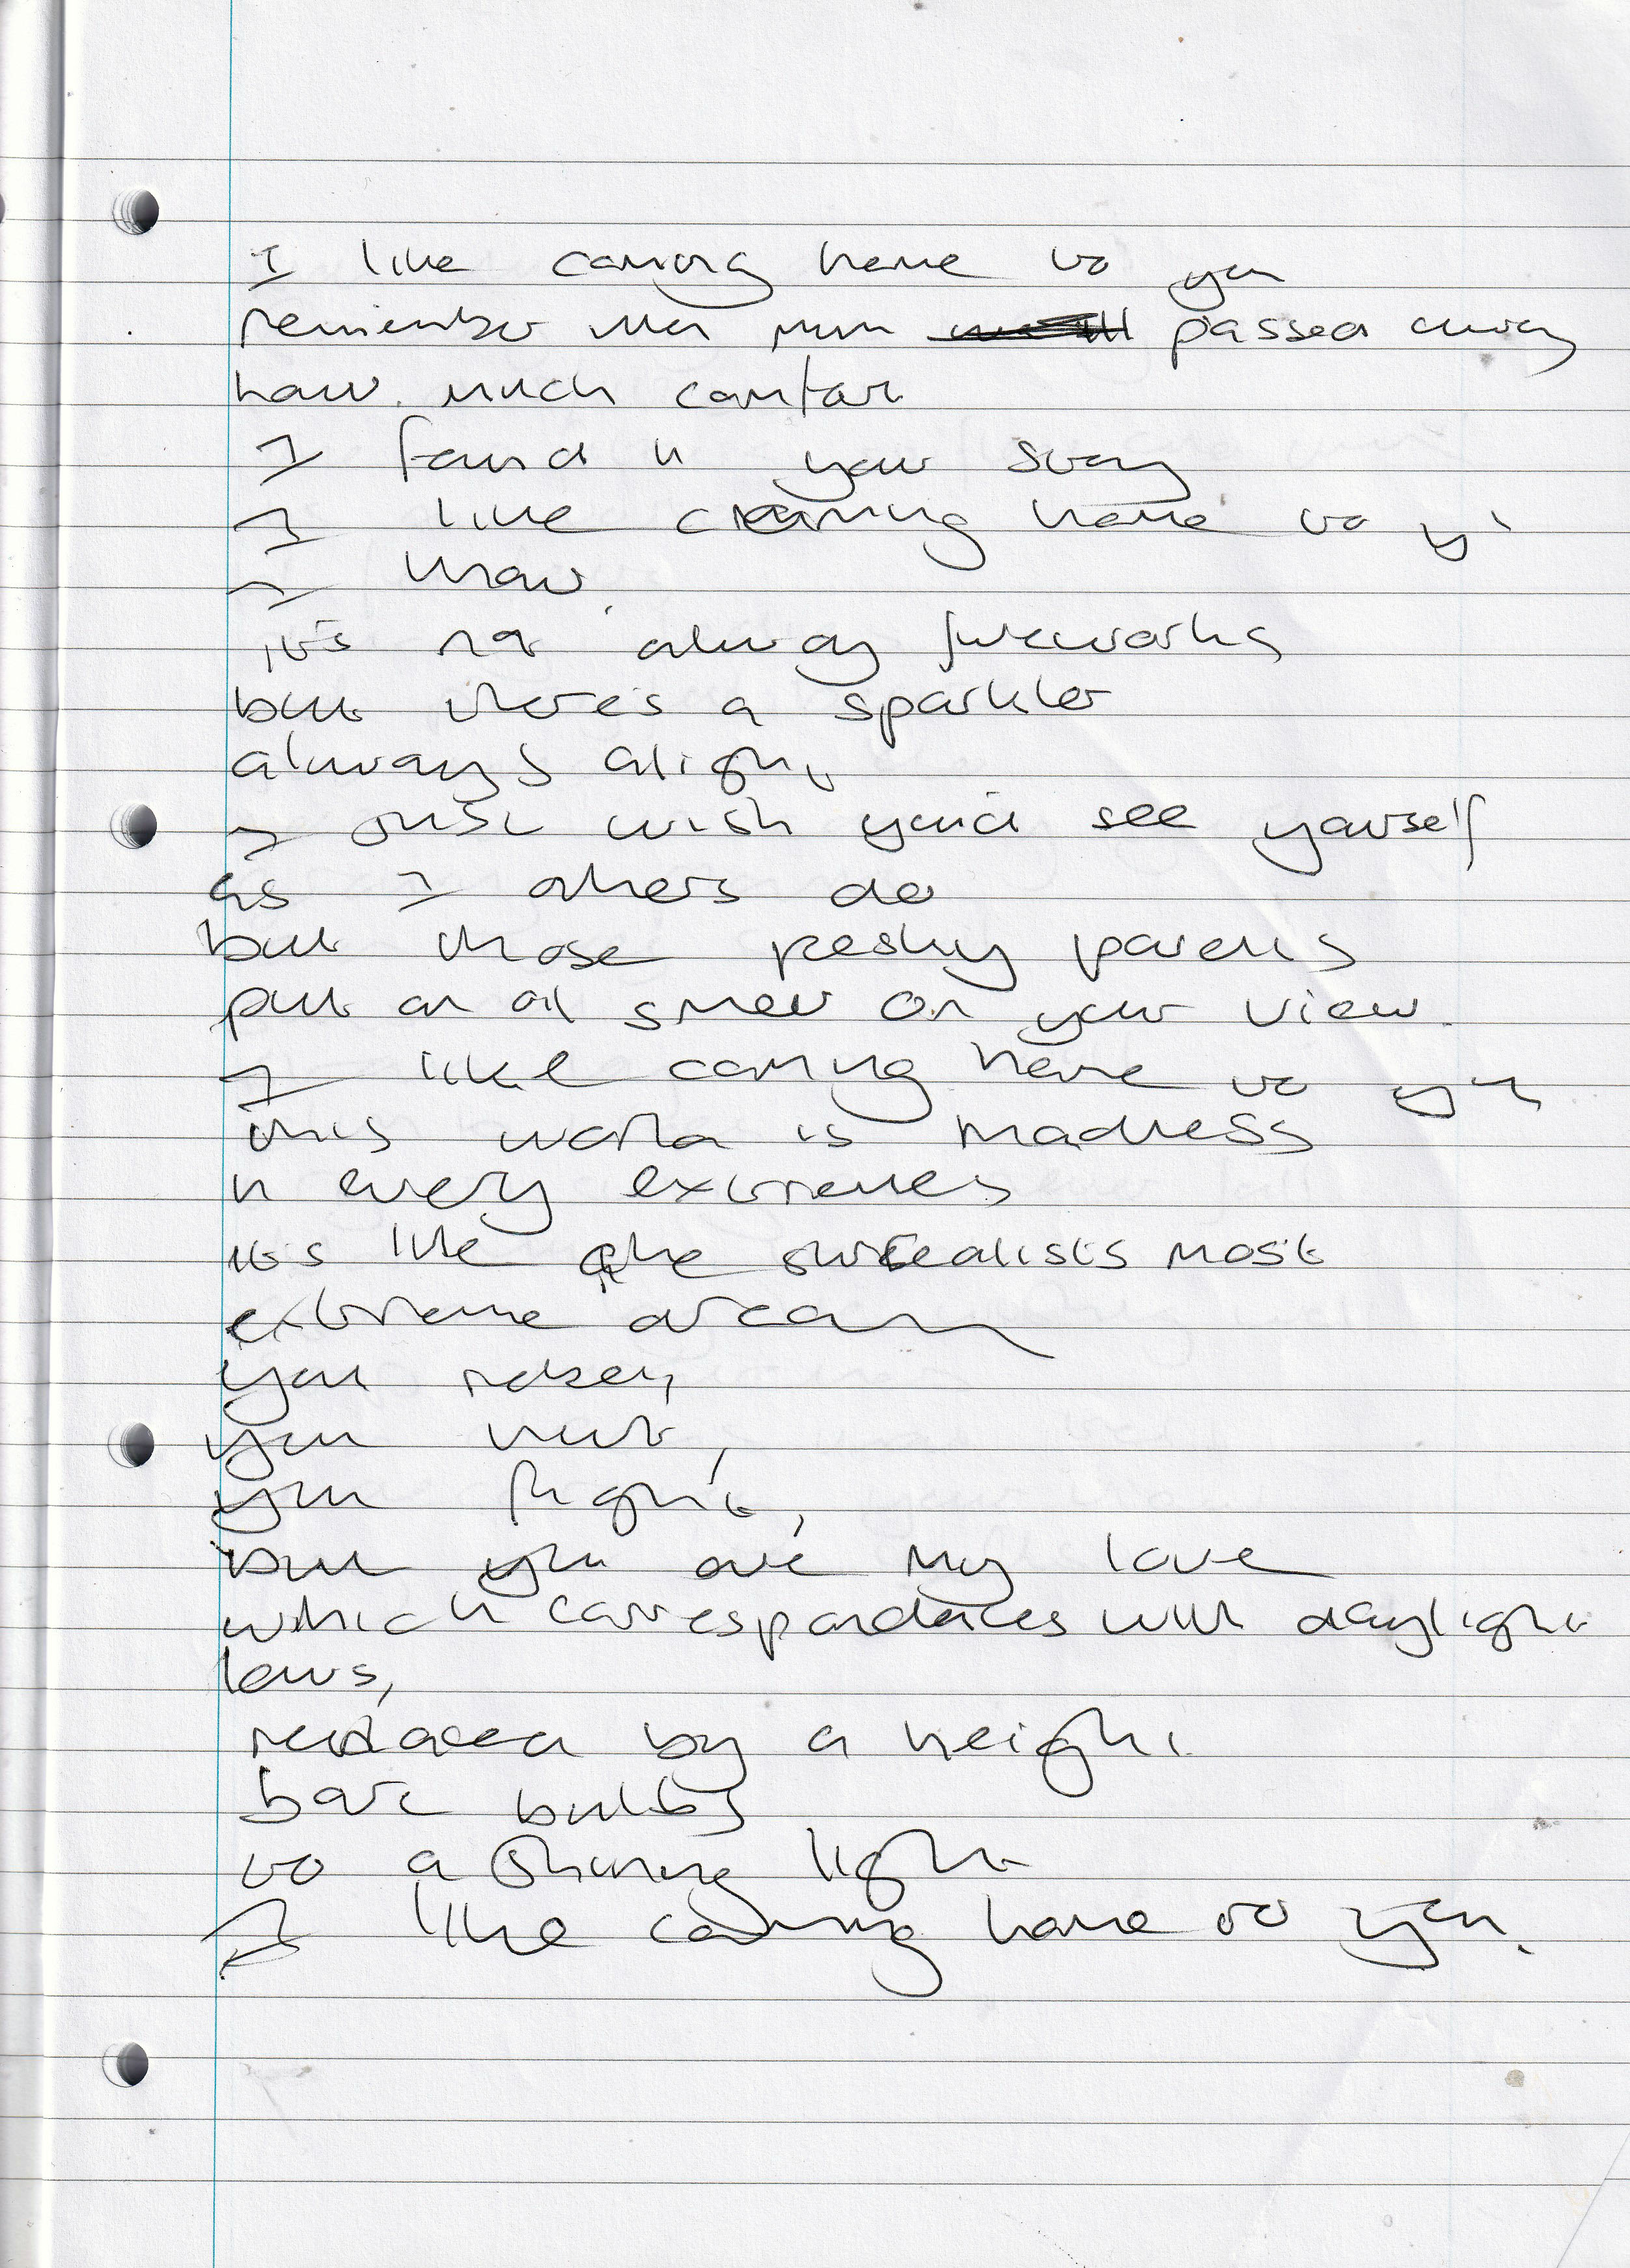 I like coming home to you
remember when mum passed away
how much comfort
I found in your story
I like coming home to you
I know
it's not always fireworks
but there's a sparkler
always alight
I just wish you'd see yourself
as I others do
but those pesky parents
put an oil smear on your view
I like coming home to you
this world is madness
in every extremes
it's like the surrealists most
extreme dream
you
you
you fight,
but you are my love
which correspondences with daylight
laws,
replaced by a height
bare bulbs
to a shining light
I like coming home to you.